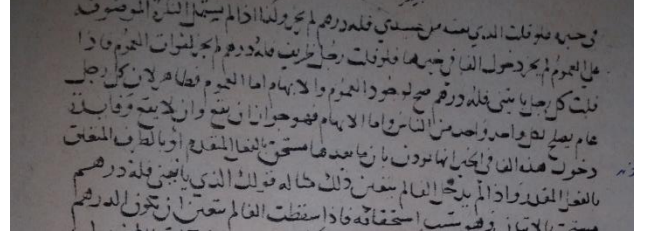 في خبره فلو قلت الذي بعثه من عندي فله درهم لم يجز ولذا اذا لم يشتمل النكرة الموصوف
على العموم لم يجز دخول الفا في خبرها فلو قلت رجل ظريف فله درهم لم يجز لفوات العموم فاذا
قلت كل رجل ياتيني فله درهم صح لوجود العموم والابهام اما العموم فظاهر لان كل رجل
عام يصلح لكل واحد واحد من الناس واما الابهام فهو جواز ان يقع وان لا يقع وفايدة
دخول هذا الفا في الخبر انها توذن بان ما بعدها مستحق بالفعل المقدم او بالظرف المتعلق
بالفعل المقدر واذا لم يدخل الفا لم يتعين ذلك مثاله قولك الذي ياتيني فله درهم
بالاتيان وهو سبب استحقاقه فاذا سقطت الفا لم يتعين ان يكون الدرهم